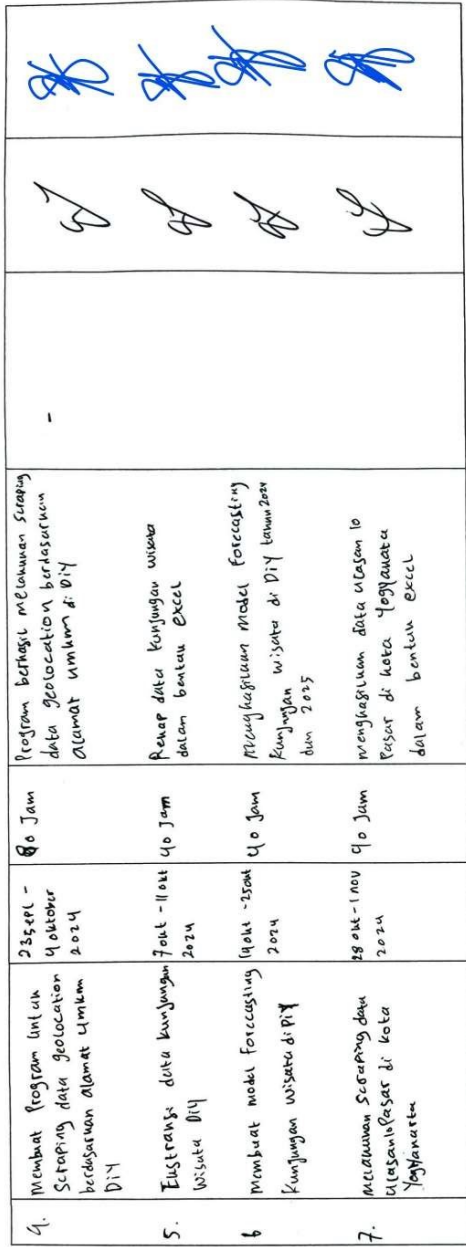 4.
Membuat Program Untuk
Scraping data geolocation
berdasarkan alamat umkm
DIY
23 sept -
4 oktober
2024
80 Jam
Program berhasil melakukan scraping
data geolocation berdasarkan
alamat umkm di DIY
-
5.
Ekstraksi data kunjungan
Wisata DIY
7 okt - 11 okt
2024
40 Jam
Rekap data kunjungan wisata
dalam bentuk excel
6
membuat model Forecasting
kunjungan wisata di DIY
14 okt - 25 okt
2024
40 Jam
menghasilkan model Forecasting
kunjungan wisata di DIY tahun 2024
dan 2025
7.
melakukan scraping data
ulasan 10 Pasar di kota
Yogyakarta
28 okt - 1 nov
2024
40 Jam
menghasilkan data ulasan 10
Pasar di kota Yogyakarta
dalam bentuk excel